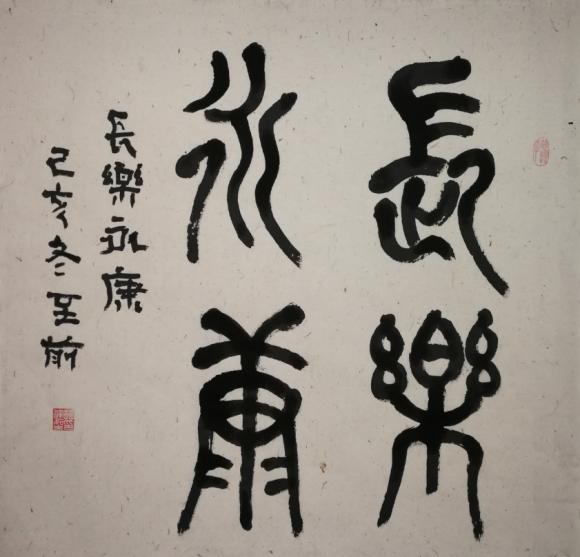 長樂
永康
長樂永康
己亥冬至前